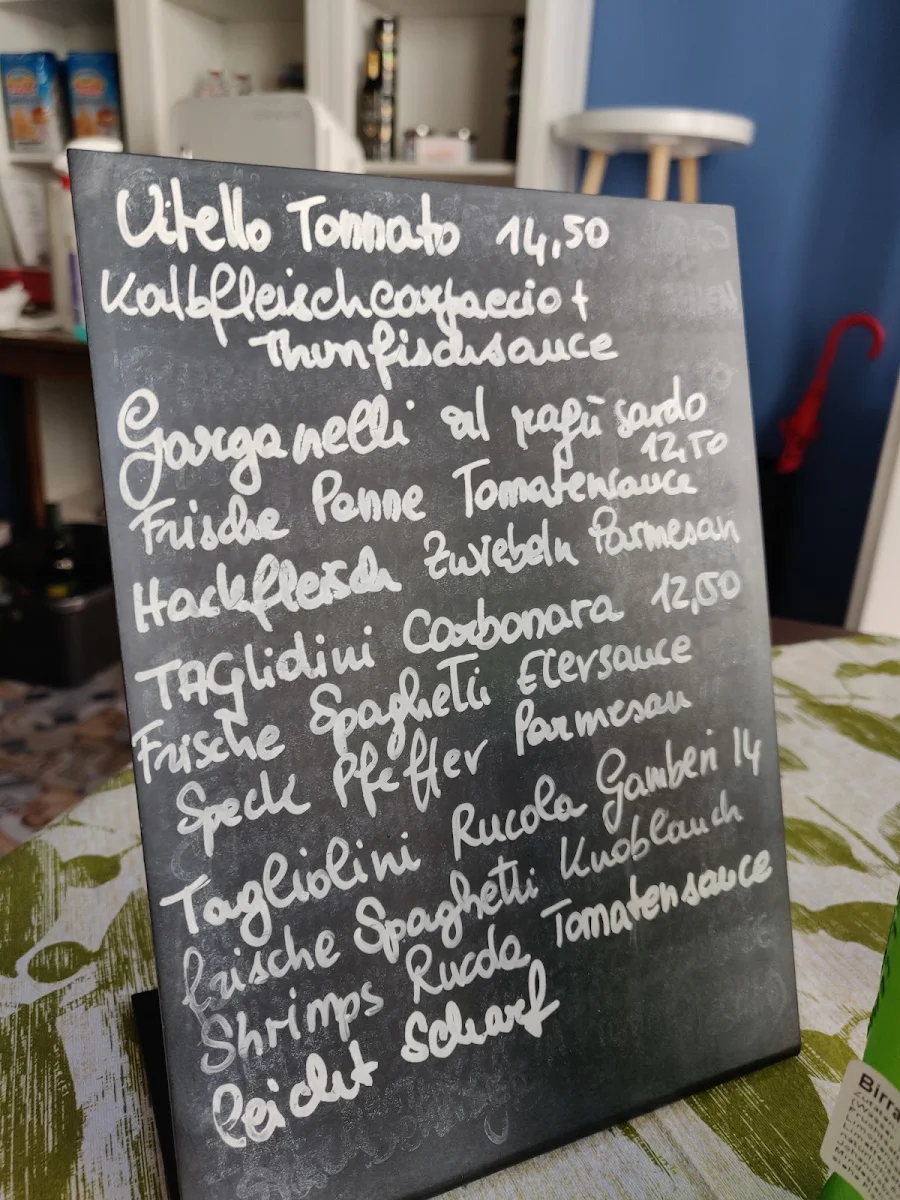 Vitello Tonnato 14,50
Kalbfleischcarpaccio +
Thunfischsauce
Garganelli al ragù sardo
12,50
Frische Penne Tomatensauce
Hackfleisch Zwiebeln Parmesan
TAGlidini Carbonara 12,50
Frische Spaghetti Eiersauce
Speck Pfeffer Parmesan
Tagliolini Rucola Gamberi 14
frische Spaghetti Knoblauch
Shrimps Rucola Tomatensauce
leicht scharf
Birra